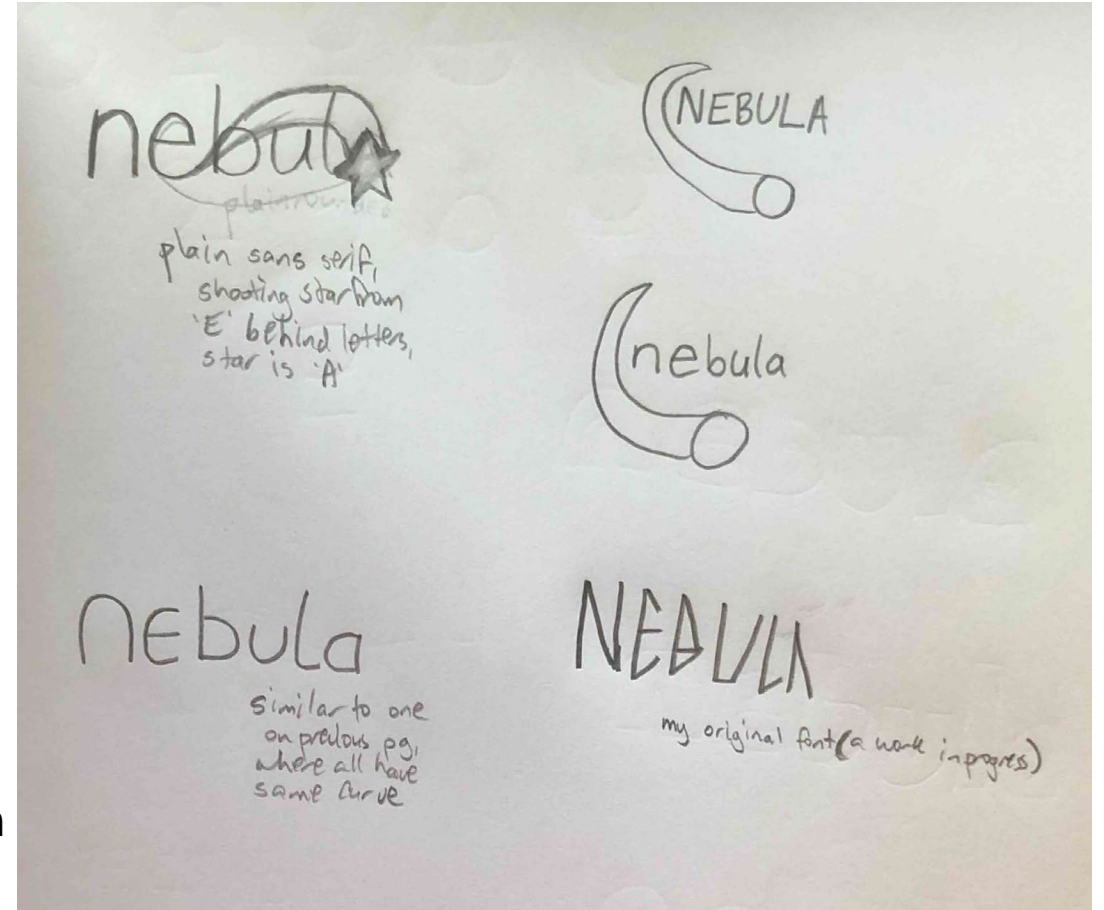 nebul
plain
plain sans serif,
shooting star from
'E' behind letters,
star is 'A'
NEBULA
nebula
nEbula
similar to one
on previous pg,
where all have
same curve
NEBULA
my original font (a work in progress)
n